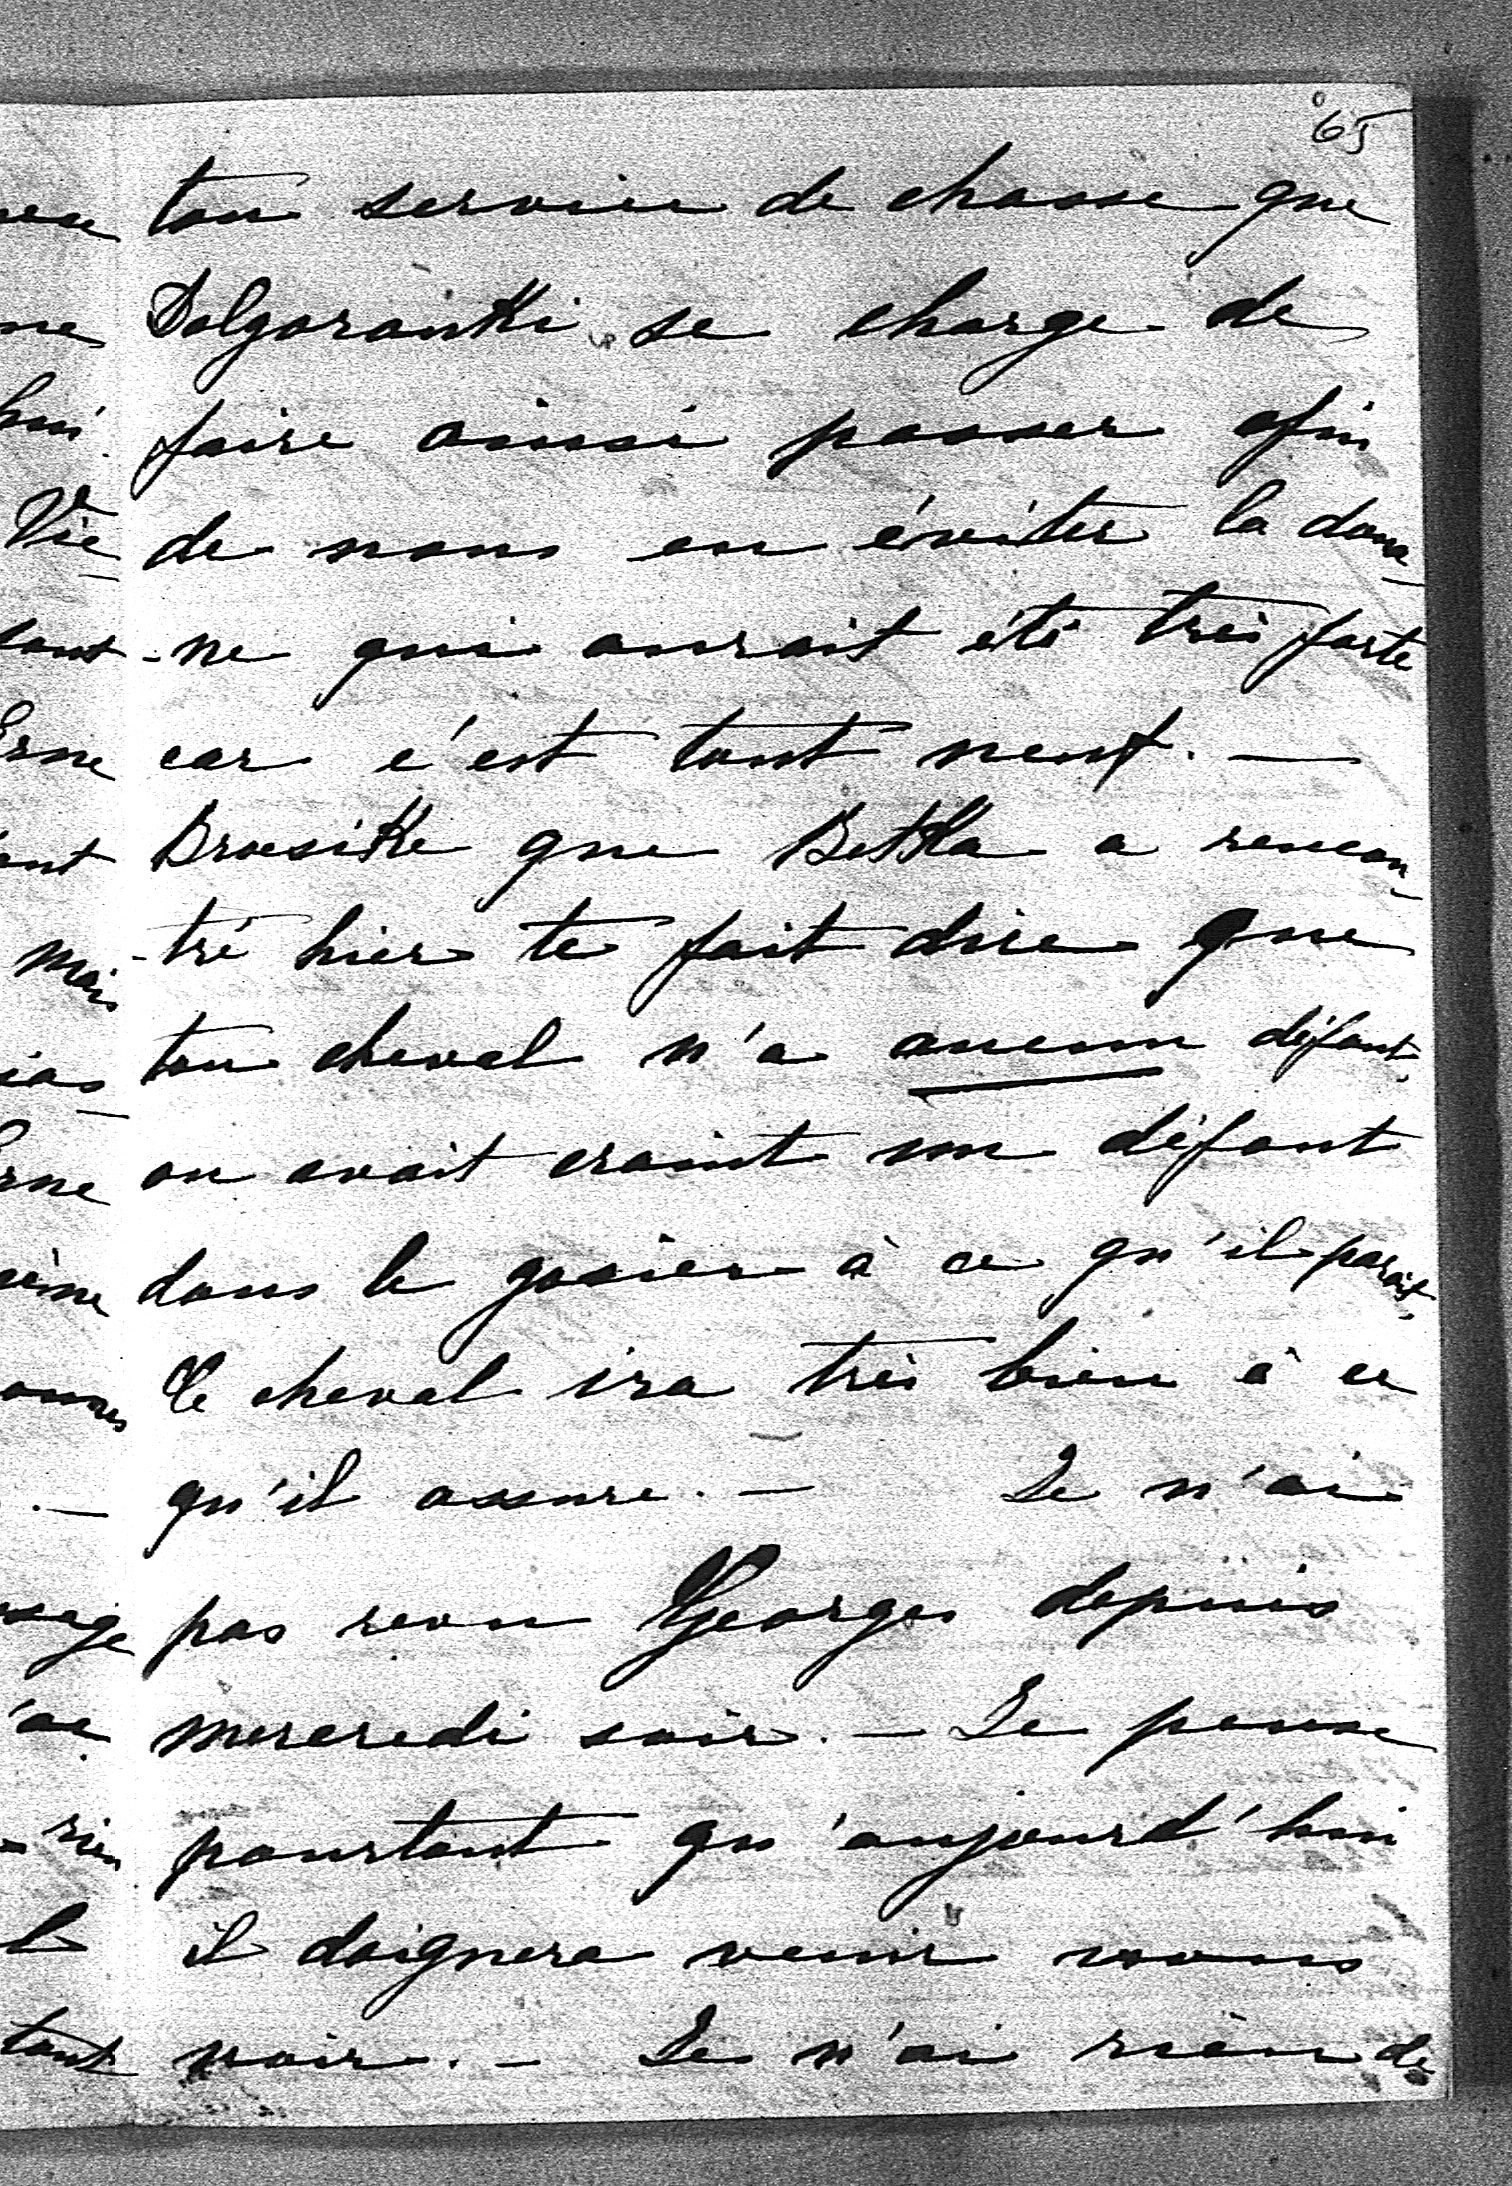 65
ton service de chasse que
Dolgorouki se charge de
faire aussi passer afin
de nous en éviter la doua
-ne qui aurait été très forte
car c'est tout neuf. —
Broesike que Betka a rencon
-tré hier te fait dire que
ton cheval n'a aucun défaut,
on avait craint un défaut
dans le gosier à ce qu'il parait.
Le cheval ira très bien à ce
qu'il assure. — Je n'ai
pas revu Georges depuis
mercredi soir. — Je pense
pourtant qu'aujourd'hui
il daignera venir nous
voir. — Je n'ai rien de